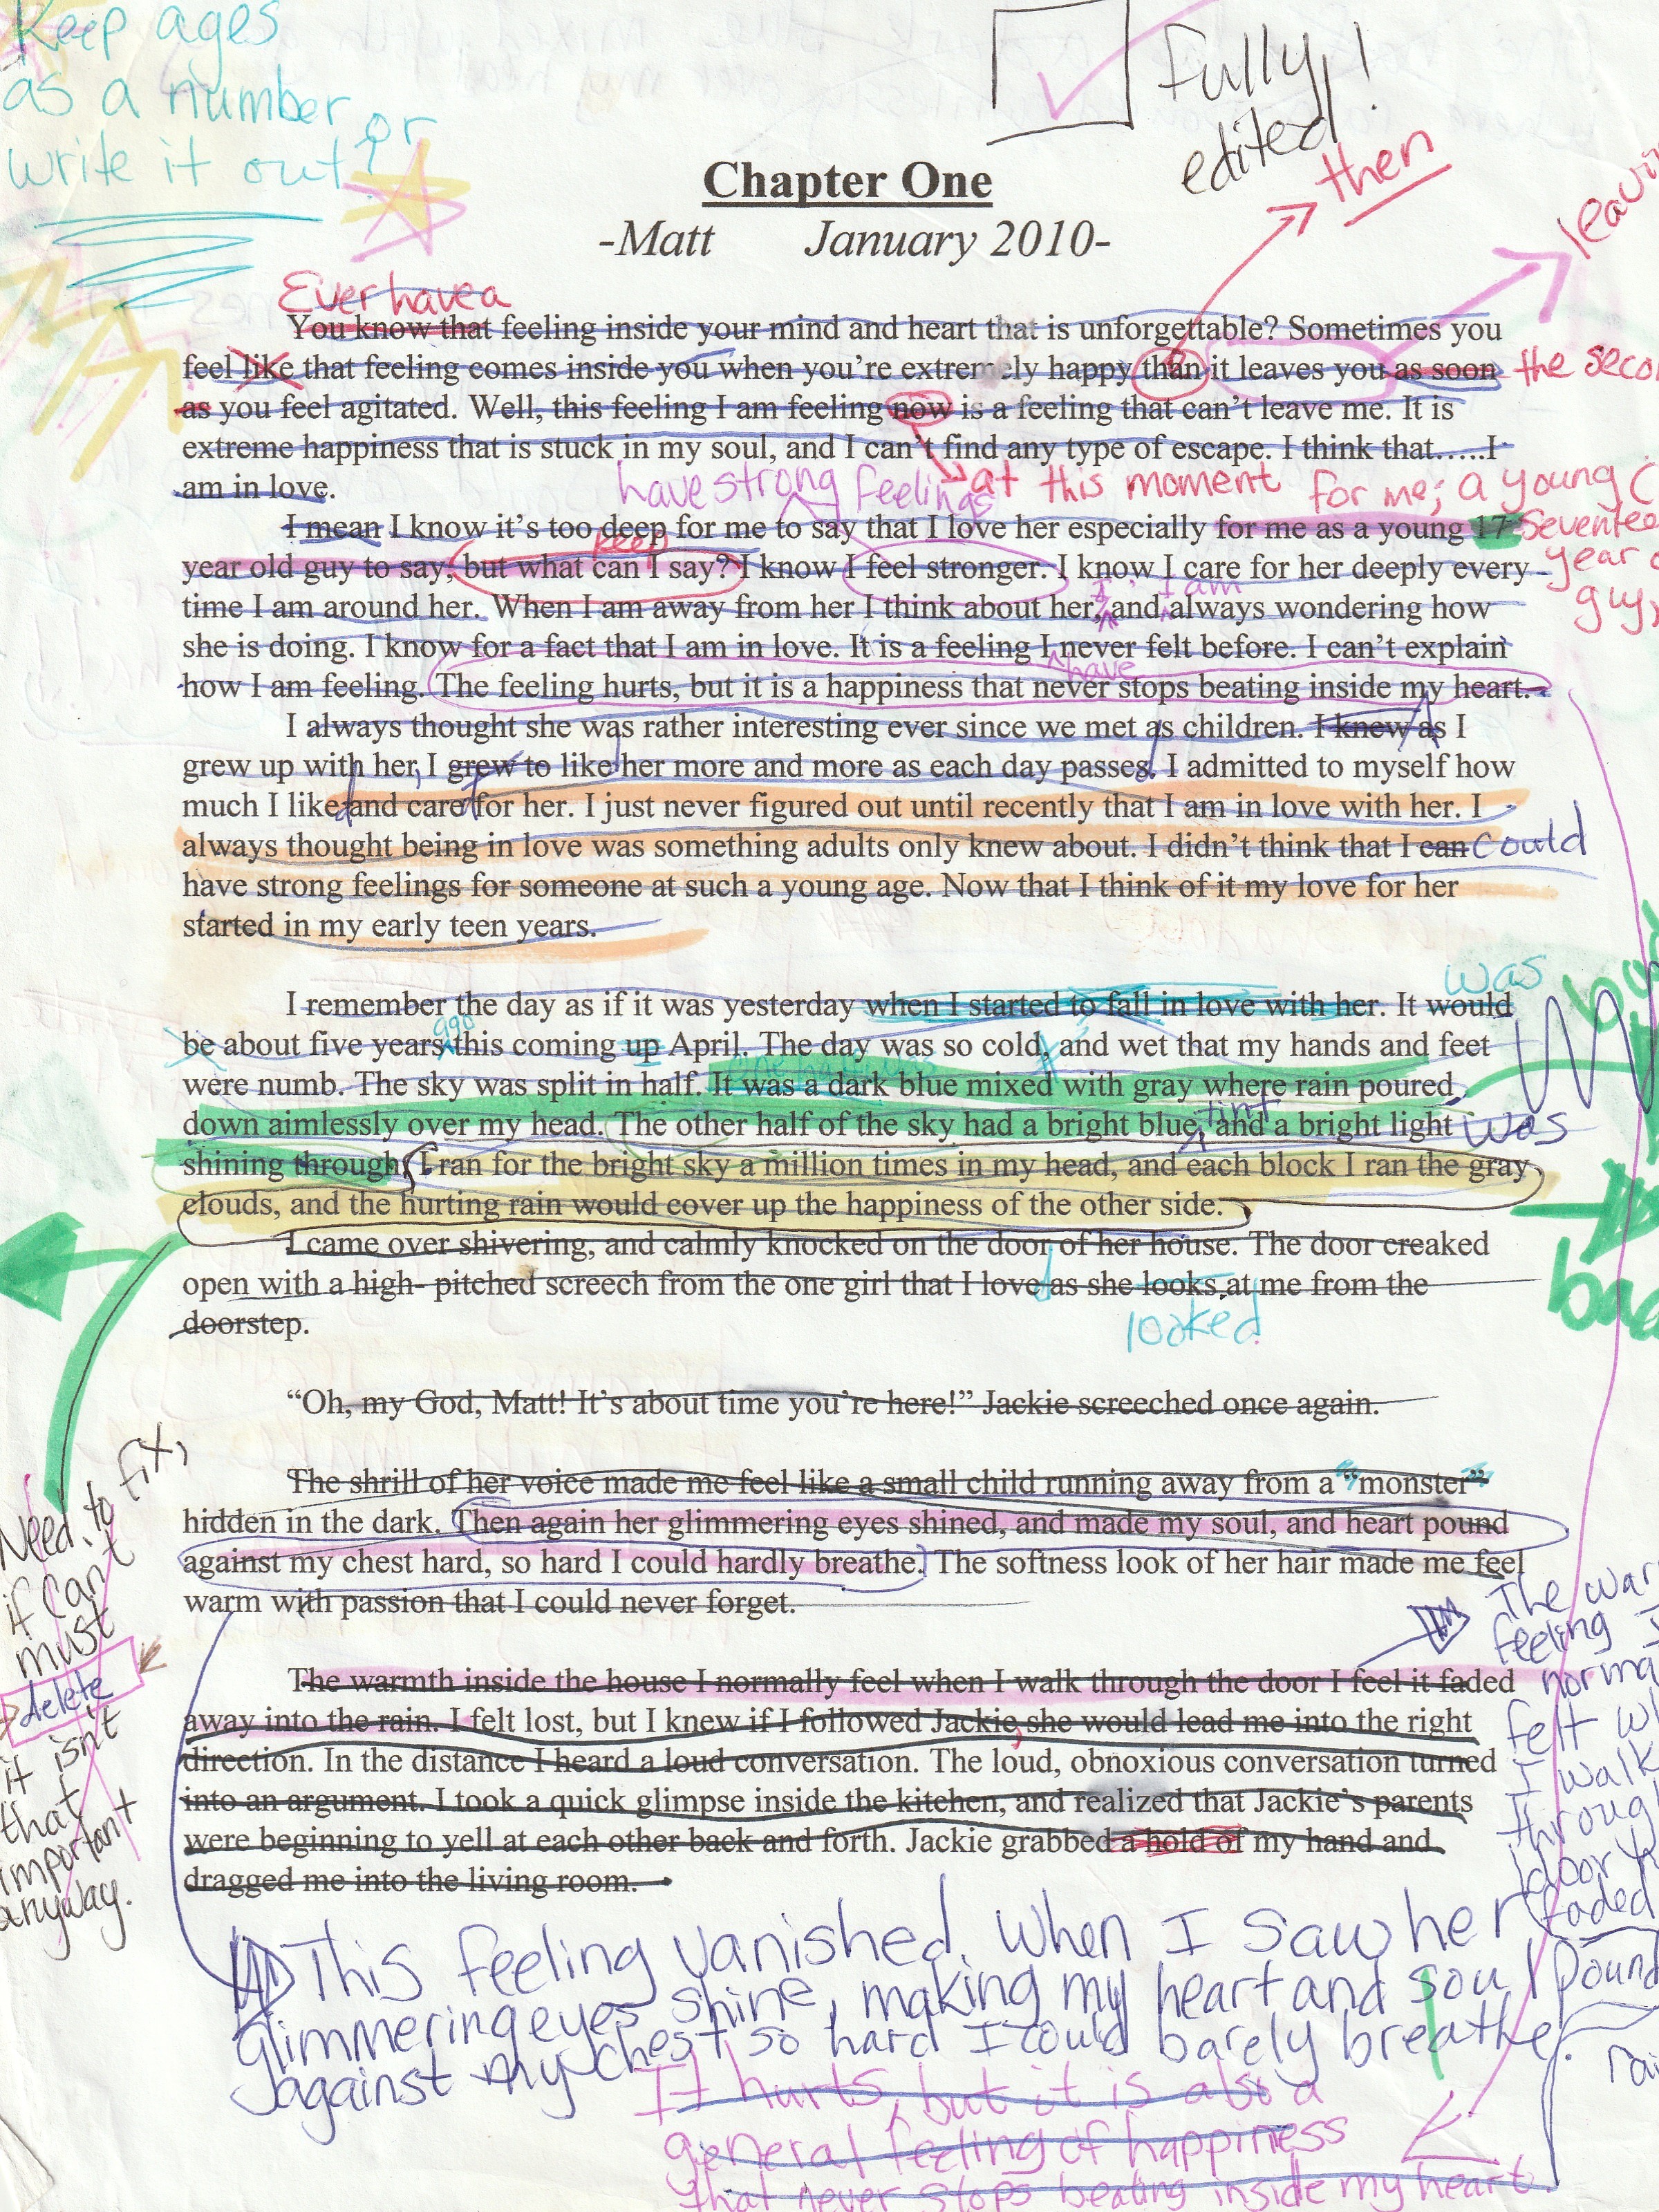 Keep ages
as a number or
write it out?
fully!
edited
then
Chapter One
-Matt January 2010-
Ever have a
You know that feeling inside your mind and heart that is unforgettable? Sometimes you
feel like that feeling comes inside you when you're extremely happy than it leaves you as soon
the
as you feel agitated. Well, this feeling I am feeling now is a feeling that can't leave me. It is
extreme happiness that is stuck in my soul, and I can't find any type of escape. I think that…..I
am in love.
have strong feelings
at this moment
for me; a young
I mean I know it's too deep for me to say that I love her especially for me as a young 17
year
guy
keep
year old guy to say, but what can I say? I know I feel stronger. I know I care for her deeply every
I I am
time I am around her. When I am away from her I think about her, and always wondering how
she is doing. I know for a fact that I am in love. It is a feeling I never felt before. I can't explain
have
how I am feeling. The feeling hurts, but it is a happiness that never stops beating inside my heart.
I always thought she was rather interesting ever since we met as children. I knew as I
grew up with her, I grew to like her more and more as each day passes. I admitted to myself how
much I like and care for her. I just never figured out until recently that I am in love with her. I
always thought being in love was something adults only knew about. I didn't think that I can could
have strong feelings for someone at such a young age. Now that I think of it my love for her
started in my early teen years.
was
I remember the day as if it was yesterday when I started to fall in love with her. It would
ago
be about five years this coming up April. The day was so cold, and wet that my hands and feet
were numb. The sky was split in half. It was a dark blue mixed with gray where rain poured
tint
down aimlessly over my head. The other half of the sky had a bright blue, and a bright light was
shining through. I ran for the bright sky a million times in my head, and each block I ran the gray
clouds, and the hurting rain would cover up the happiness of the other side.
I came over shivering, and calmly knocked on the door of her house. The door creaked
open with a high- pitched screech from the one girl that I love as she looks at me from the
looked
doorstep.
"Oh, my God, Matt! It's about time you're here!" Jackie screeched once again.
The shrill of her voice made me feel like a small child running away from a "monster"
hidden in the dark. Then again her glimmering eyes shined, and made my soul, and heart pound
against my chest hard, so hard I could hardly breathe. The softness look of her hair made me feel
warm with passion that I could never forget.
Need to fix,
if can't
must
delete
it isn't
that
important
anyway.
The
feeling
felt
I walk
door
faded
The warmth inside the house I normally feel when I walk through the door I feel it faded
away into the rain. I felt lost, but I knew if I followed Jackie, she would lead me into the right
direction. In the distance I heard a loud conversation. The loud, obnoxious conversation turned
into an argument. I took a quick glimpse inside the kitchen, and realized that Jackie's parents
were beginning to yell at each other back and forth. Jackie grabbed a hold of my hand and
dragged me into the living room.
This feeling vanished. When I saw her
glimmering eyes shine, making my heart and soul pound
against my chest so hard I could barely breathe.
It hurts, but it is also a
general feeling of happiness
that never stops beating inside my heart.